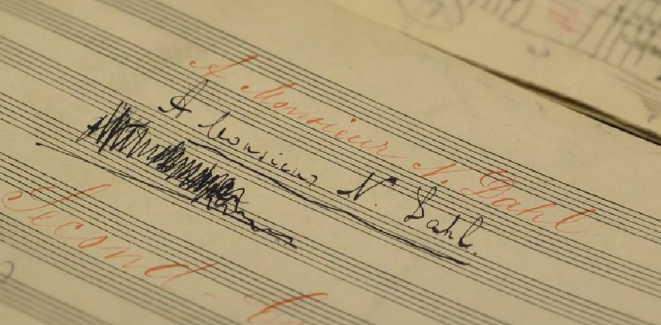 A Monsieur N. Dahl
A Monsieur N. Dahl.
Second